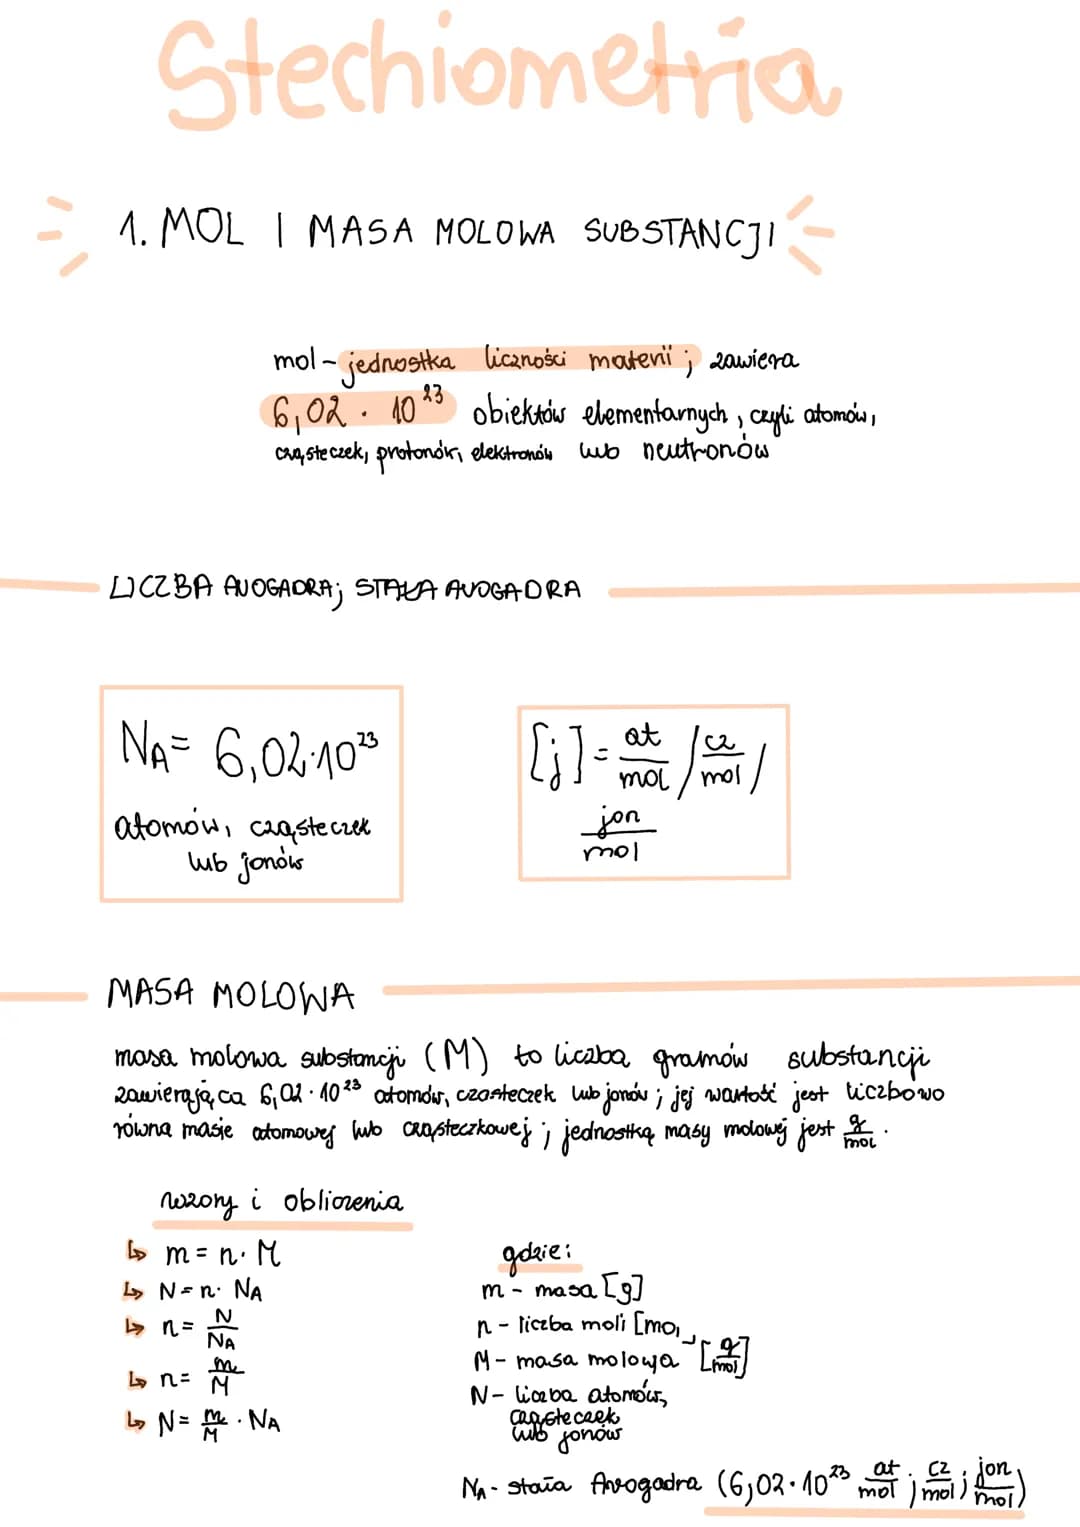 Stechiometria
1. MOL I MASA MOLOWA SUBSTANCJI
mol - jednostka liczności materii; zawiera
6,02 · 10²³ obiektów elementarnych, czyli atomów,
cząsteczek, protonów, elektronów lub neutronów
LICZBA AVOGADRA; STAŁA AVOGADRA
NA = 6,02·10²³
atomów, cząsteczek
lub jonów
[j] = at/mol / cz/mol /
jon/mol
MASA MOLOWA
masa molowa substancji (M) to liczba gramów substancji
zawierająca 6,02 · 10²³ atomów, cząsteczek lub jonów; jej wartość jest liczbowo
równa masie atomowej lub cząsteczkowej; jednostką masy molowej jest g/mol.
wzory i obliczenia
↳ m = n · M
↳ N = n · NA
↳ n = N/NA
↳ n = m/M
↳ N = m/M · NA
gdzie:
m - masa [g]
n - liczba moli [mol]
M - masa molowa [g/mol]
N - liczba atomów,
cząsteczek
lub jonów
NA - stała Avogadra (6,02·10²³ at/mol ; cz/mol ; jon/mol)